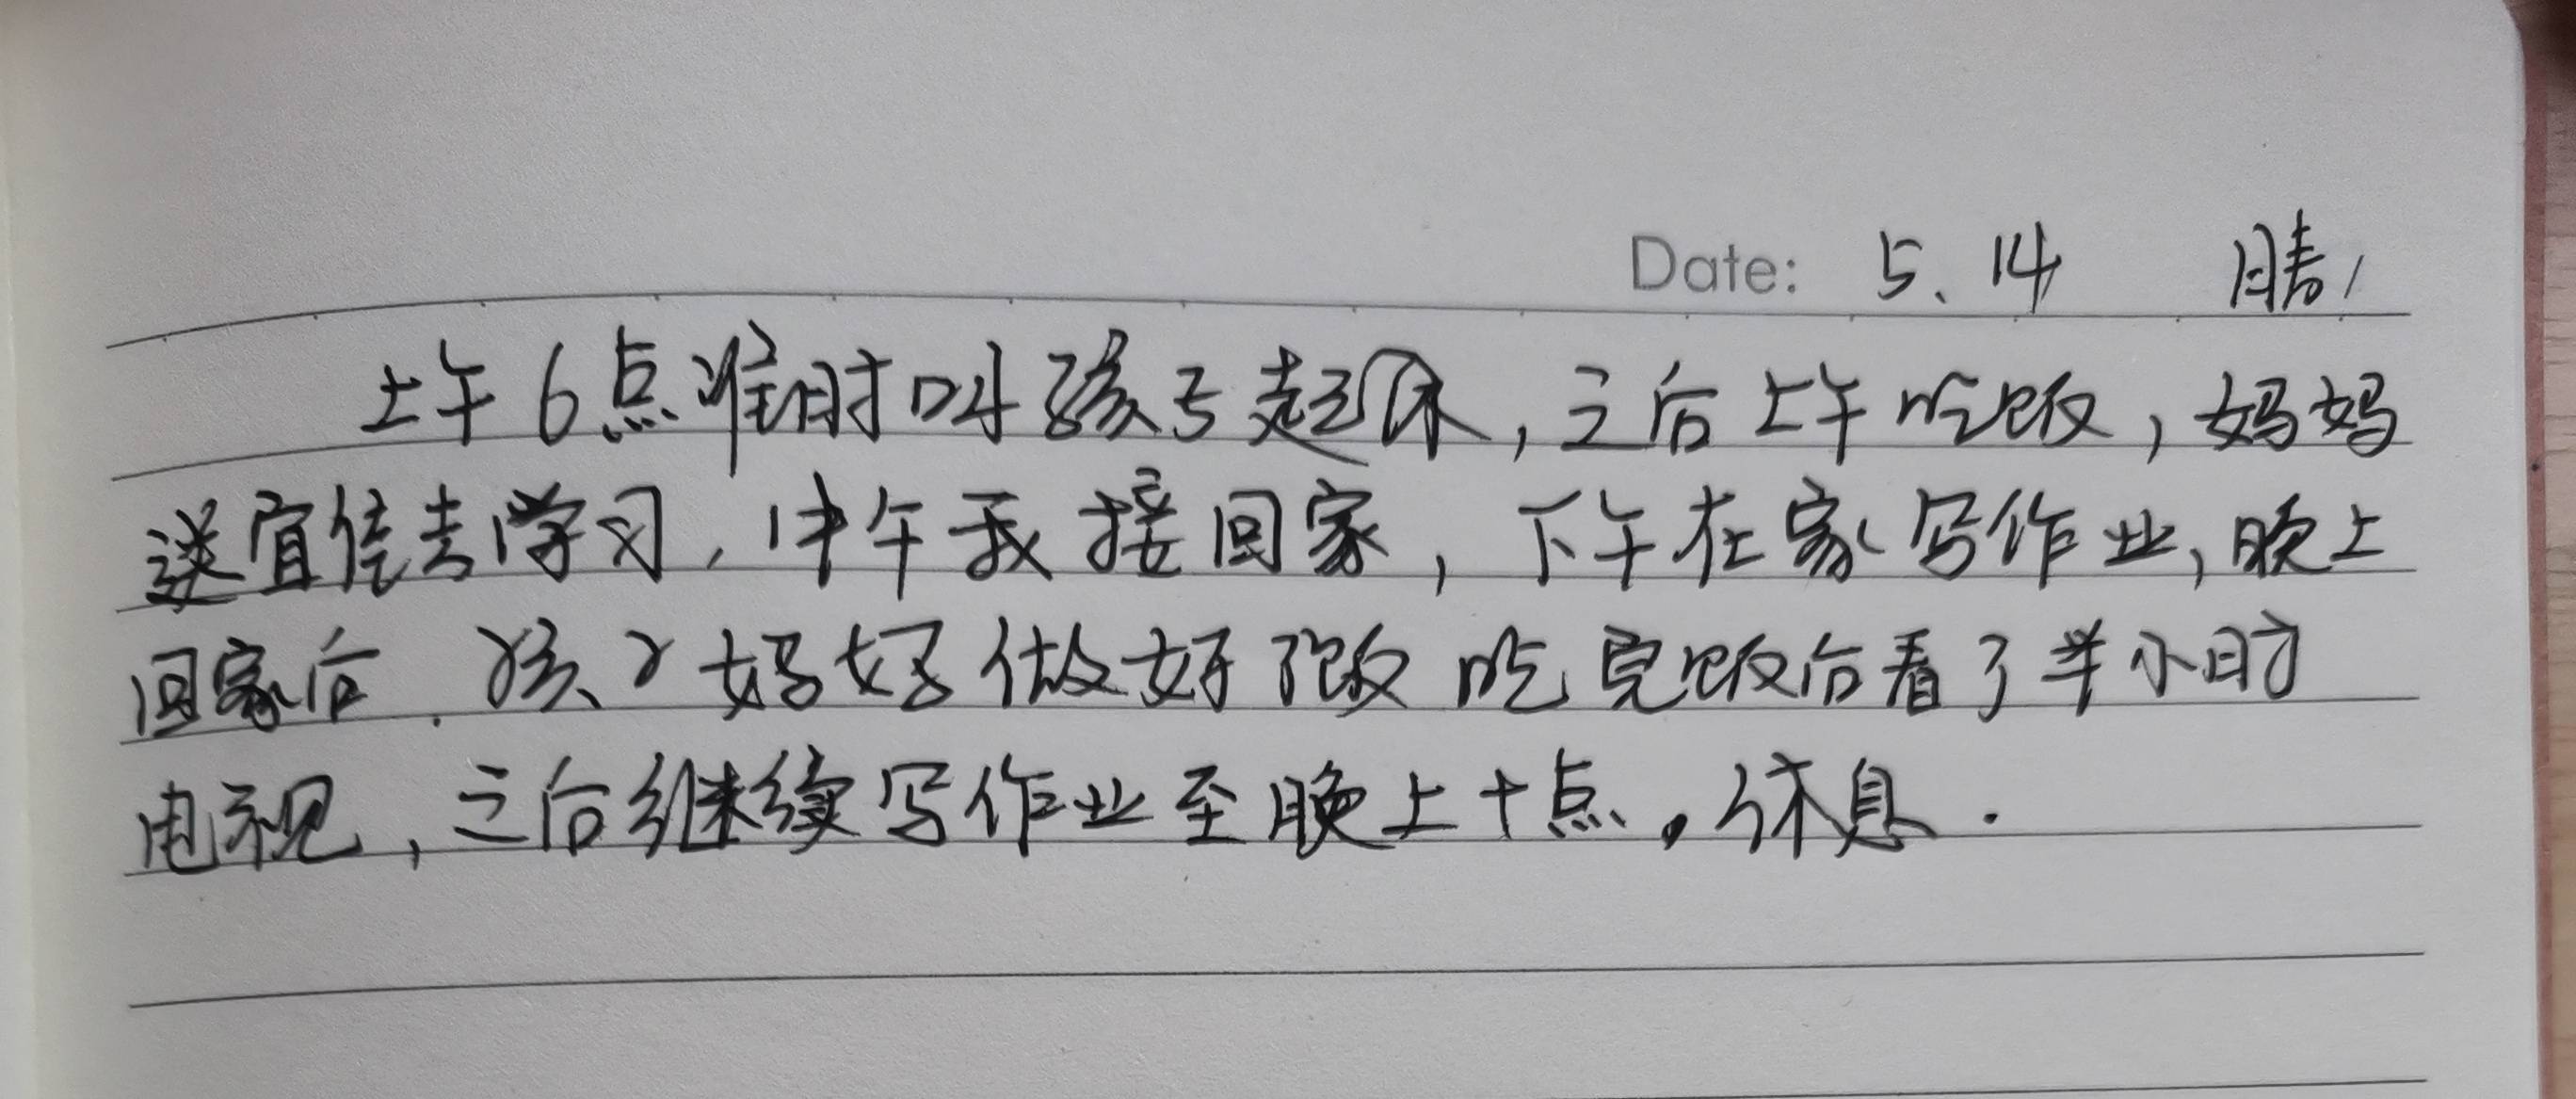 Date: 5.14 晴
上午6点准时叫孩子起床,之后上午吃饭,妈妈
送宜佳去学习,中午我接回家,下午在家写作业,晚上
回家后.孩子妈妈做好饭吃完饭后看了半小时
电视,之后继续写作业至晚上十点,休息.